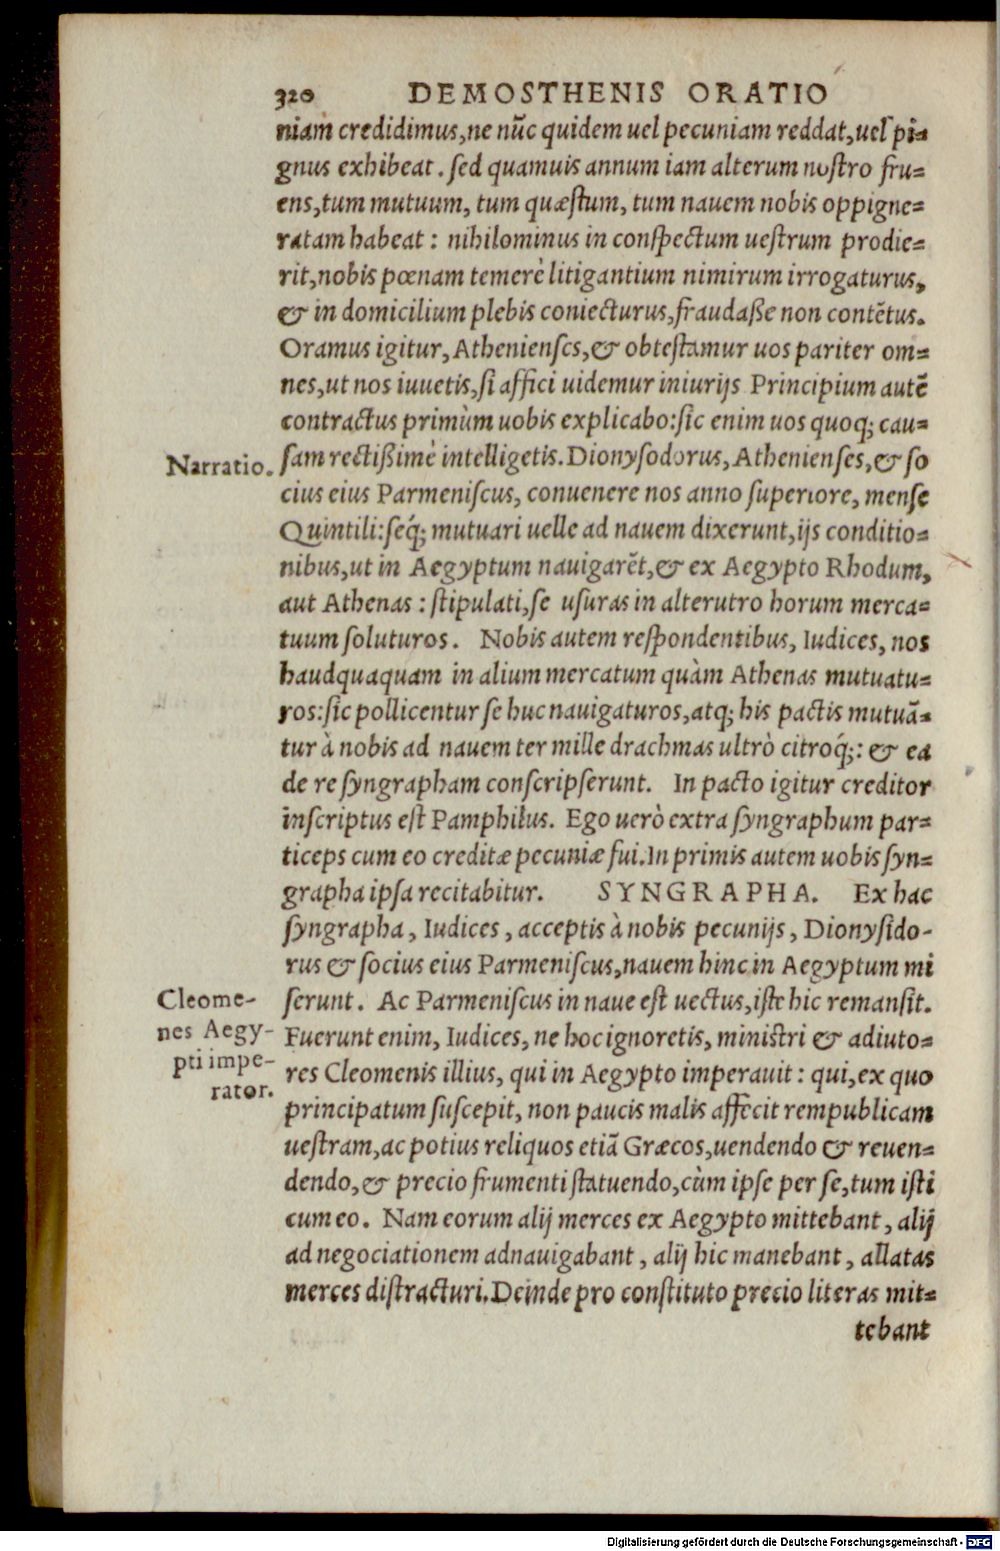 320 DEMOSTHENIS ORATIO
niam credidimus, ne nūc quidem uel pecuniam reddat, uel pi=
gnus exhibeat. sed quamuis annum iam alterum nostro fru=
ens, tum mutuum, tum quæstum, tum nauem nobis oppigne=
ratam habeat: nihilominus in conspectum uestrum prodie=
rit, nobis pœnam temerè litigantium nimirum irrogaturus,
& in domicilium plebis coniecturus, fraudaße non contētus.
Oramus igitur, Athenienses, & obtestamur uos pariter om=
nes, ut nos iuuetis, si affici uidemur iniurijs Principium autē
contractus primùm uobis explicabo: sic enim uos quoq; cau=
Narratio. sam rectißimè intelligetis. Dionysodorus, Athenienses, & so
cius eius Parmeniscus, conuenere nos anno superiore, mense
Quintili: seq́; mutuari uelle ad nauem dixerunt, ijs conditio=
nibus, ut in Aegyptum nauigarēt, & ex Aegypto Rhodum,
aut Athenas: stipulati, se usuras in alterutro horum merca=
tuum soluturos. Nobis autem respondentibus, Iudices, nos
haudquaquam in alium mercatum quàm Athenas mutuatu=
ros: sic pollicentur se huc nauigaturos, atq; his pactis mutuā=
tur à nobis ad nauem ter mille drachmas ultrò citroq́;: & ea
de re syngrapham conscripserunt. In pacto igitur creditor
inscriptus est Pamphilus. Ego uerò extra syngraphum par=
ticeps cum eo creditæ pecuniæ fui. In primis autem uobis syn=
grapha ipsa recitabitur. SYNGRAPHA. Ex hac
syngrapha, Iudices, acceptis à nobis pecunijs, Dionysido-
rus & socius eius Parmeniscus, nauem hinc in Aegyptum mi
Cleome- serunt. Ac Parmeniscus in naue est uectus, iste hic remansit.
nes Aegy- Fuerunt enim, Iudices, ne hoc ignoretis, ministri & adiuto=
pti impe- res Cleomenis illius, qui in Aegypto imperauit: qui, ex quo
rator. principatum suscepit, non paucis malis affecit rempublicam
uestram, ac potius reliquos etiā Græcos, uendendo & reuen=
dendo, & precio frumenti statuendo, cùm ipse per se, tum isti
cum eo. Nam eorum alij merces ex Aegypto mittebant, alij
ad negociationem adnauigabant, alij hic manebant, allatas
merces distracturi. Deinde pro constituto precio literas mit=
tebant
Digitalisierung gefördert durch die Deutsche Forschungsgemeinschaft - DFG